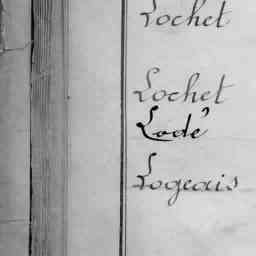 Lochet
Lochet
Lodé
Logeais